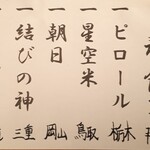 一ピロール 栃木
一星空米 鳥取
一朝日 岡山
一結びの神 三重